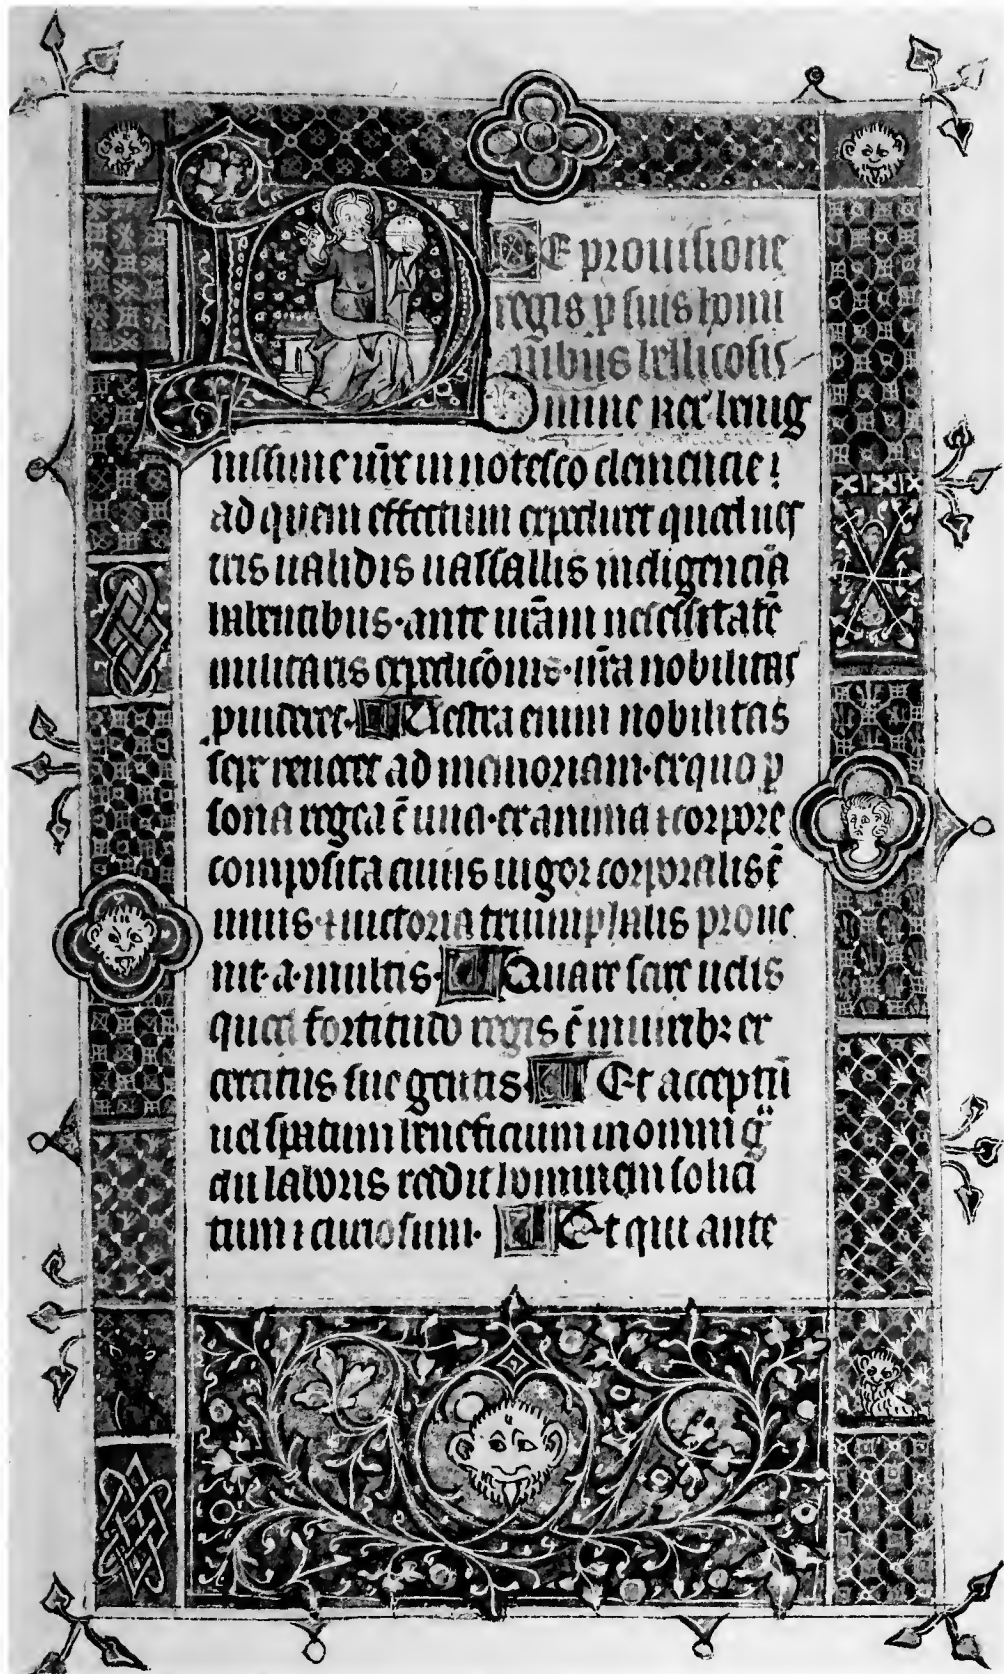 De prouisione
regis ꝓ suis homi
nibus bellicosis
Domine rex benig
nissime ur̄e innotesco clemencie ⁊
ad quem effectum expediret quod ues
tris ualidis uassallis indigencia᷉
habentibus · ante ura᷉m necessitate᷉
militaris expedico᷉nis · ur̄a nobilitas
ꝓuideret · Uestra enim nobilitas
sepe reuocet ad memoriam · ex quo ꝑ
sona regia e᷉ una · ex anima ⁊ corpore
composita cuius uigor corporalis e᷉
unius · ⁊ uictoria triumphalis proue
nit · a · multis · Quare scire uelis
quod fortitudo regis e᷉ in uirib3 ex
ercitus sue gentis · Et acceptu᷉
uel speratum beneficium in omni gͣ
du laboris reddit hominem solici
tum ⁊ curiosum · Et qui ante